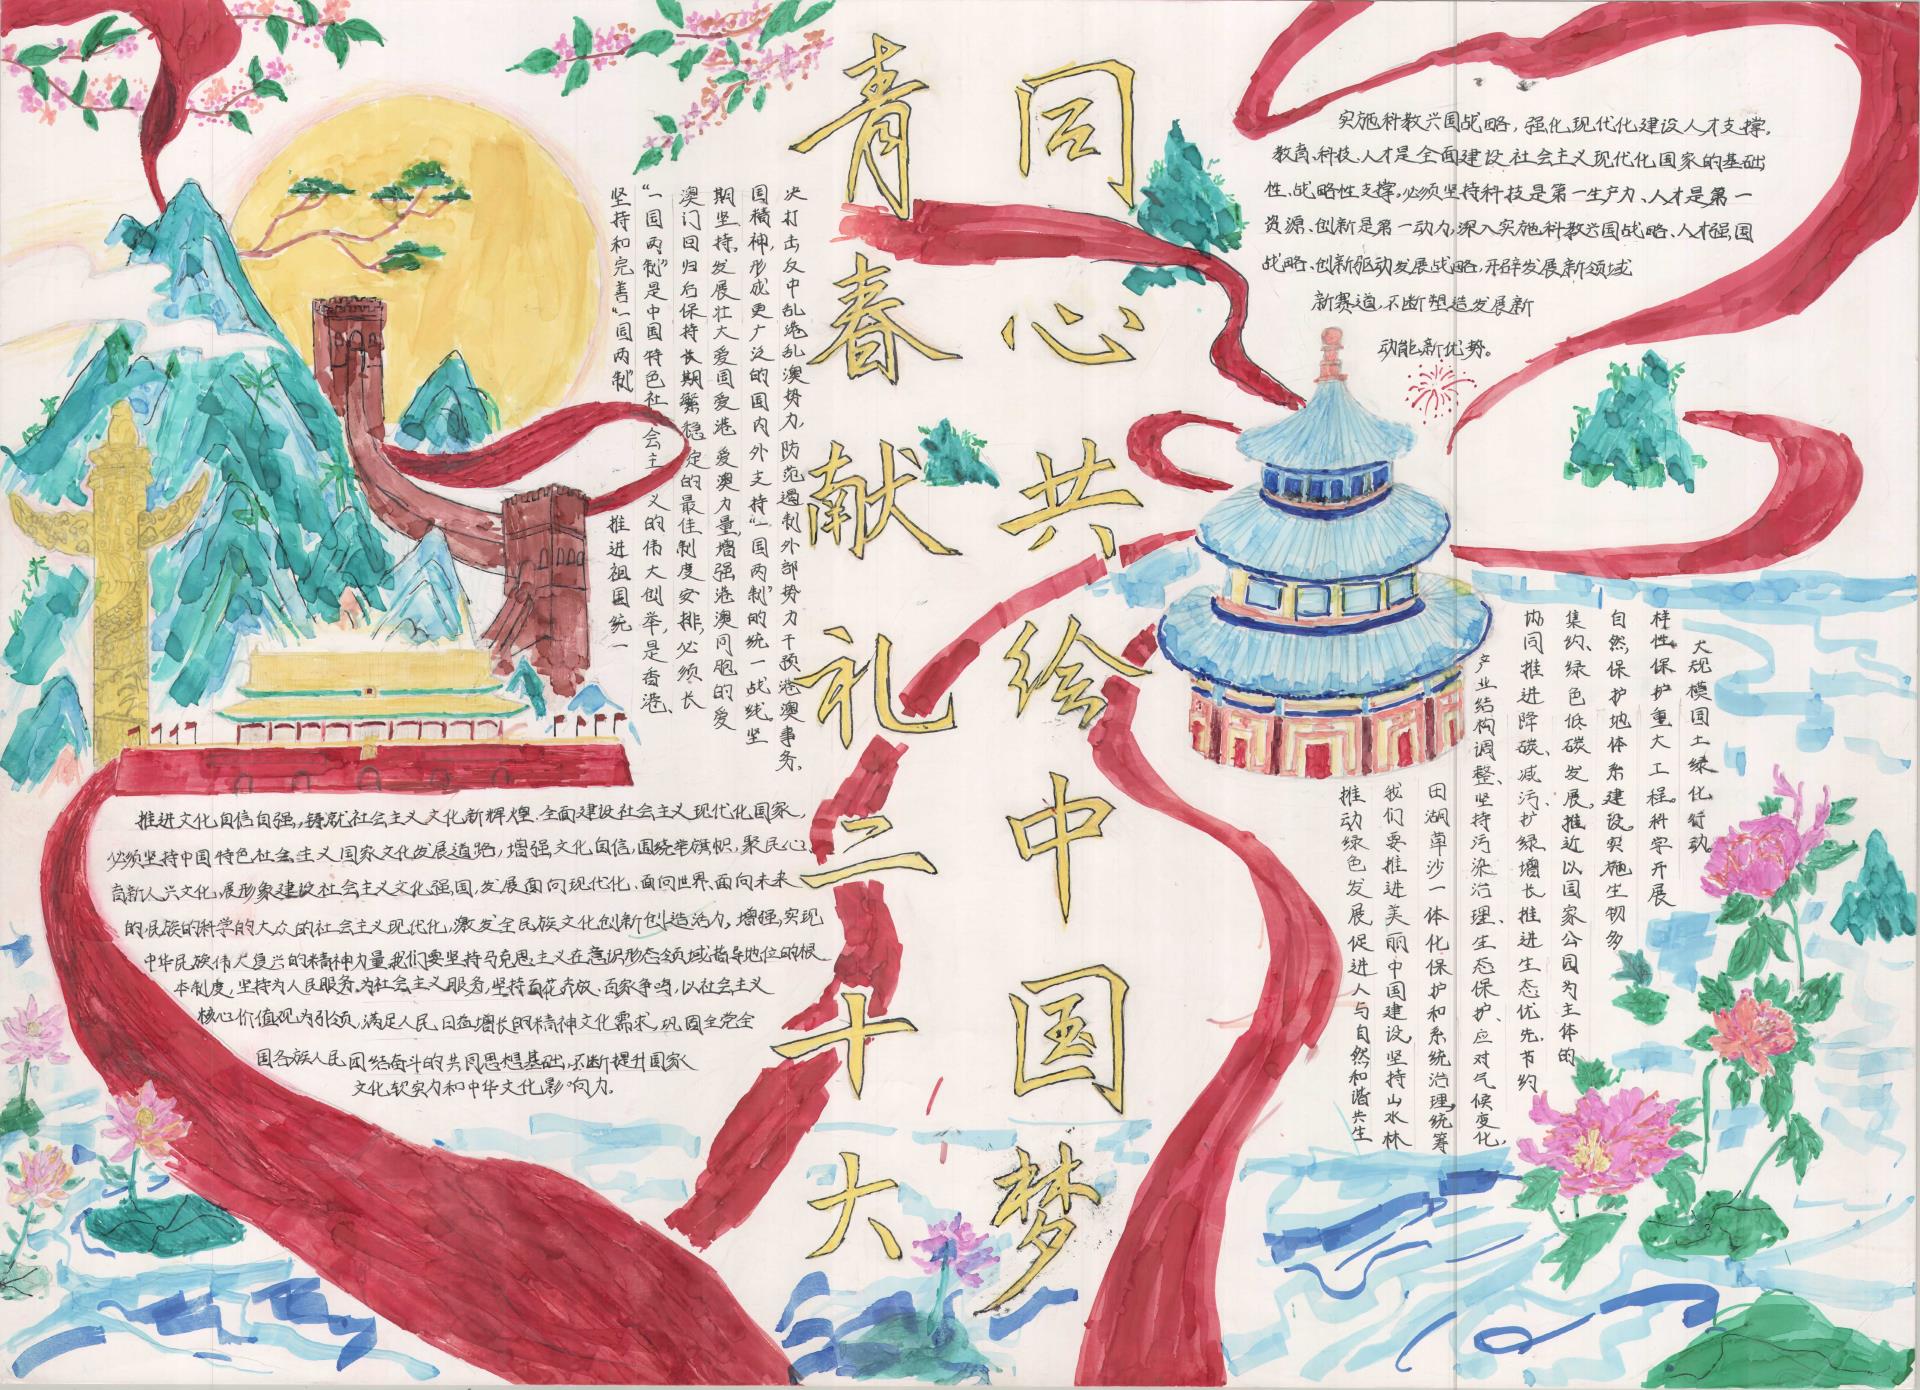 青春献礼二十大
同心共绘中国梦
坚持和完善“一国两制” 推进祖国统一
“一国两制”是中国特色社会主义的伟大创举,是香港、
澳门回归后保持长期繁稳定的最佳制度安排,必须长
期坚持,发展壮大爱国爱港爱澳力量,增强港澳同胞的爱
国精神,形成更广泛的国内外支持“一国两制”的统一战线。坚
决打击反中乱港乱澳势力,防范遏制外部势力干预港澳事务。
推进文化自信自强,铸就社会主义文化新辉煌、全面建设社会主义现代化国家,
必须坚持中国特色社会主义国家文化发展道路,增强文化自信,围绕举旗帜,聚民心、
育新人兴文化,展形象建设社会主义文化强国,发展面向现代化、面向世界、面向未来
的,民族的科学的大众的社会主义现代化,激发全民族文化创新创造活力,增强实现
中华民族伟大复兴的精神力量我们要坚持马克思主义在意识形态领域指导地位的根
本制度,坚持为人民服务、为社会主义服务,坚持百花齐放、百家争鸣,以社会主义
核心价值观为引领,满足人民日在增长的精神文化需求,巩固全党全
国各族人民团结奋斗的共同思想基础,不断提升国家
文化软实力和中华文化影响力。
实施科教兴国战略,强化现代化建设人才支撑。
教育、科技、人才是全面建设社会主义现代化国家的基础
性、战略性支撑,必须坚持科技是第一生产力、人才是第一
资源、创新是第一动力,深入实施科教兴国战略、人才强国
战略、创新驱动发展战略,开辟发展新领域
新赛道,不断塑造发展新
动能新优势。
推动绿色发展促进人与自然和谐共生
我们要推进美丽中国建设,坚持山水林
田湖草沙一体化保护和系统治理,统筹
产业结构调整、坚持污染治理、生态保护、应对气候变化,
协同推进降碳、减污、扩绿、增长推进生态优先、节约
集约、绿色低碳发展,推近以国家公园为主体的
自然保护地体系建设,实施生物多
样性保护重大工程。科学开展
大规模国土绿化行动。